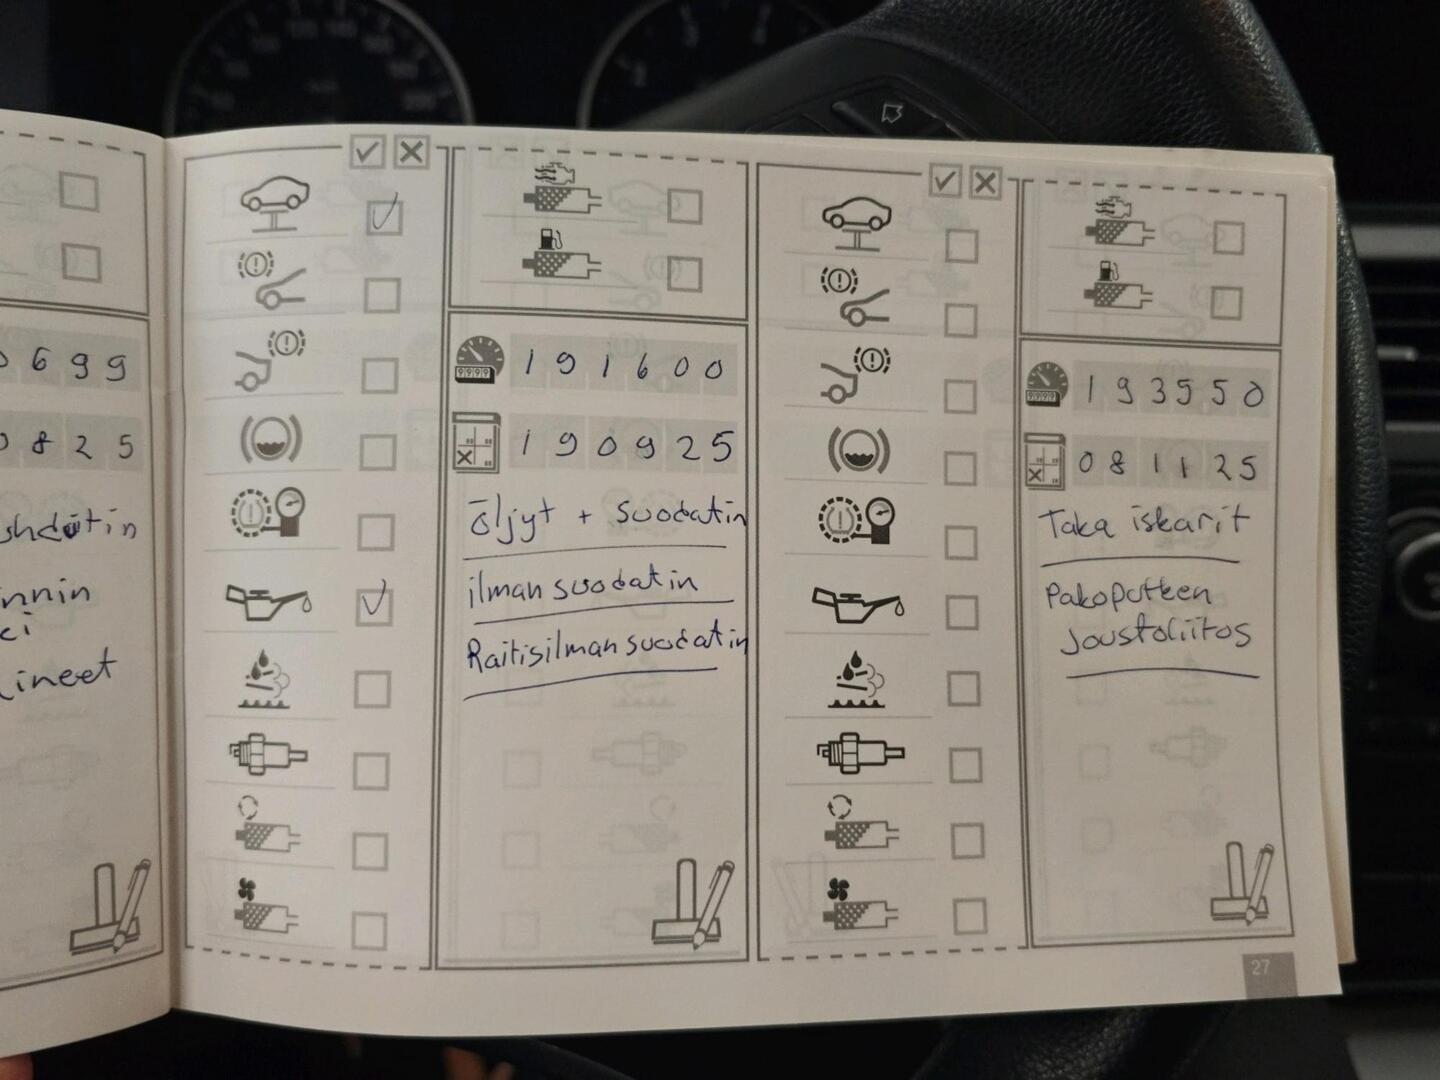 0699
0825
innin
ineet
191600
190925
öljyt + suodatin
ilman suodatin
Raitisilman suodatin
193550
081125
Taka iskarit
Pakoputken
Joustoliitos
27